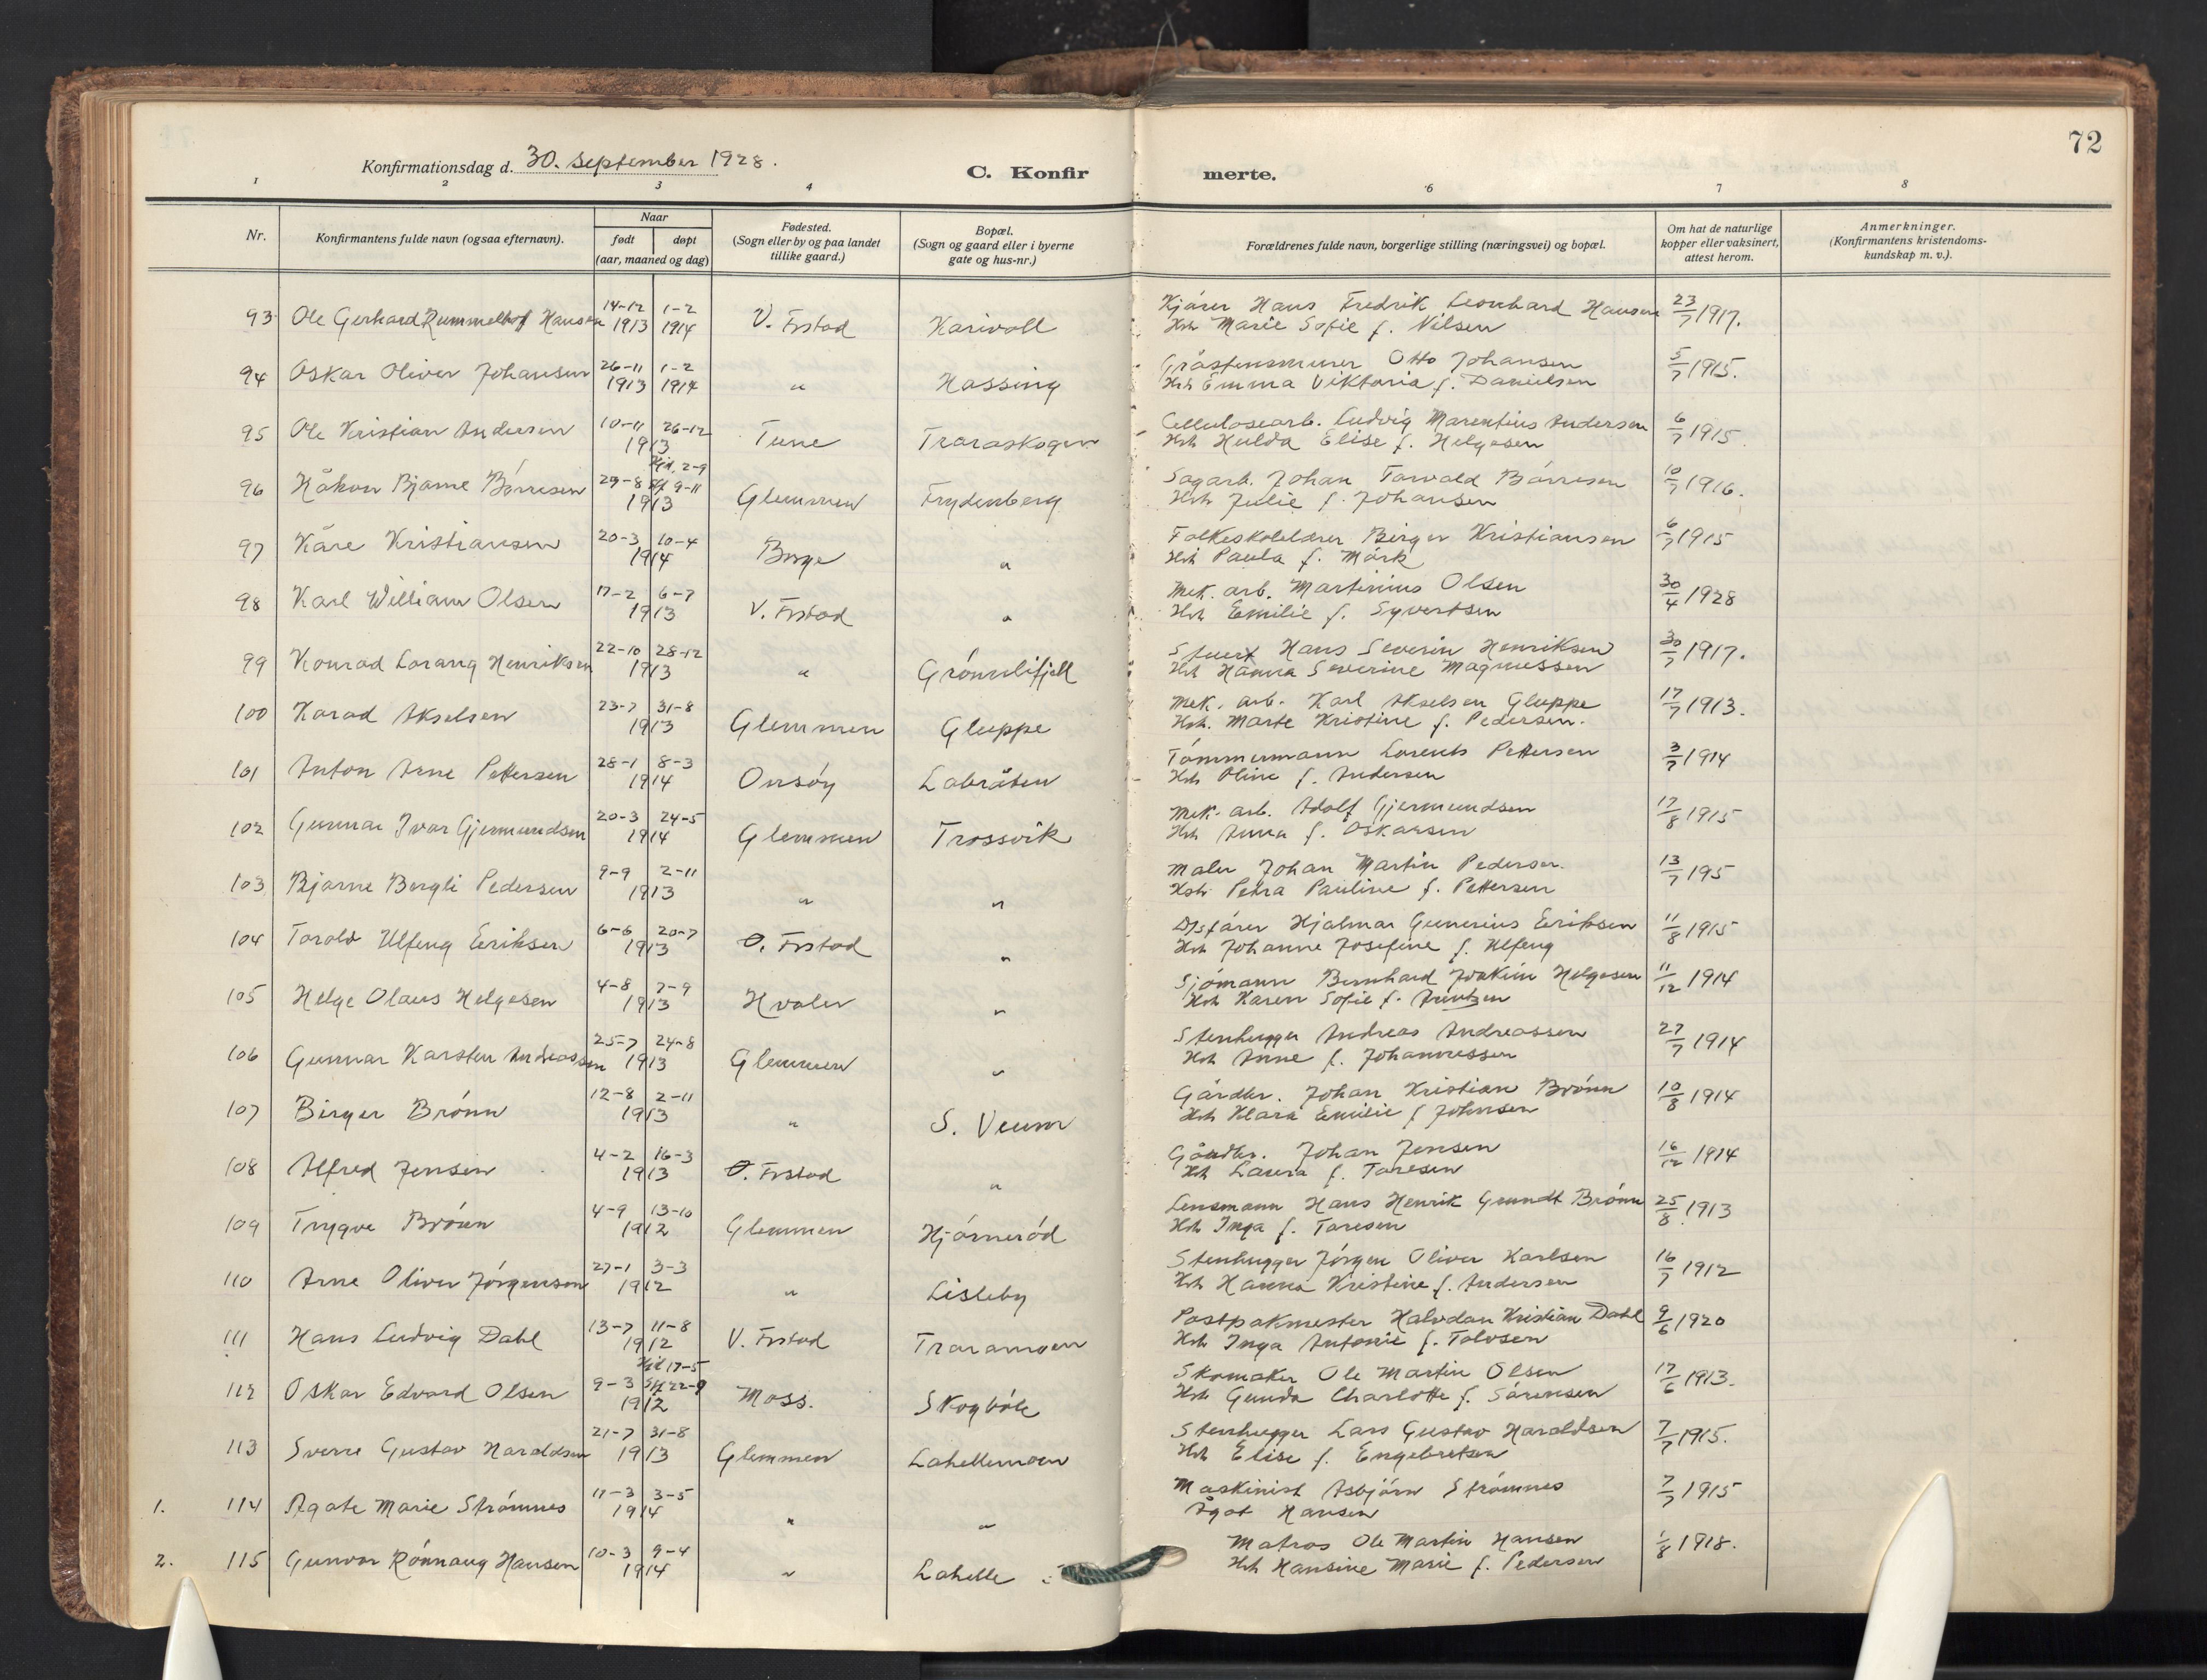 72
Konfirmationsdag d. 30. september 1928.
C. Konfir merte.
1 2 3 4 6 7 8
Nr.
Konfirmantens fulde navn (ogsaa efternavn).
Naar
født døpt
(aar, maaned og dag)
Fødested.
(Sogn eller by og paa landet
tillike gaard.)
Bopæl.
(Sogn og gaard eller i byerne
gate og hus-nr.)
Forældrenes fulde navn, borgerlige stilling (næringsvei) og bopæl.
Om hat de naturlige
kopper eller vaksinert,
attest herom.
Anmerkninger.
(Konfirmantens kristendoms-
kundskap m. v.).
93 Ole Gerhard Rummelhof Hansen 14-12 1913 1-2 1914 V. Frstad Karivoll Kjører Hans Fredrik Leonhard Hansen 23/7 1917.
Hst Marie Sofie f. Nilsen
94 Oskar Oliver Johansen 26-11 1913 1-2 1914 " Hassing Gråstensmurer Otto Johansen 5/7 1915.
Hst Emma Viktoria f. Danielsen
95 Ole Kristian Andersen 10-11 26-12 1913 Tune Traraskogen Cellulosearb. Ludvig Marentius Andersen 6/7 1915.
Hst Hulda Elise f. Helgesen
96 Håkon Bjarne Børresen 29-8 Hjd. 2-9 Stf 9-11 1913 Glemmen Frydenberg Sagarb. Johan Torvald Børresen 10/7 1916.
Hst Julie f. Johansen
97 Kåre Kristiansen 20-3 10-4 1914 Borge " Folkeskolelærer Birger Kristiansen 6/7 1915
Hst Paula f. Mørk
98 Karl William Olsen 17-2 6-7 1913 V. Frstad " Mek. arb. Martinius Olsen 30/4 1928
Hst Emilie f. Syvertsen
99 Konrad Lorang Henriksen 22-10 28-12 1913 " Grønnlifjell Stuert Hans Severin Henriksen 30/7 1917.
Hst Hanna Severine Magnussen
100 Harad Akselsen 23-7 31-8 1913 Glemmen Gluppe Mek. arb. Karl Akselsen Gluppe 17/7 1913.
Hst. Marte Kristine f. Pedersen.
101 Anton Arne Pettersen 28-1 8-3 1914 Onsøy Labråten Tømmermann Lorents Pettersen 3/7 1914
Hst Oline f. Andersen
102 Gunnar Ivar Gjermundsen 20-3 24-5 1914 Glemmen Trossvik Mek. arb. Adolf Gjermundsen 17/8 1915
Hst Anna f. Oskarsen
103 Bjarne Bergli Pedersen 9-9 2-11 1913 " " Maler Johan Martin Pedersen. 13/7 195
Hst. Petra Pauline f. Pettersen
104 Torolv Ulfeng Eriksen 6-6 20-7 1913 O. Frstad " Hjalmar Gunerius Eriksen 11/8 1915
Hst Johanne Josefine f. Ulfeng
105 Helge Olaus Helgesen 4-8 7-9 1913 Hvaler " Sjømann Bernhard Joakim Helgesen 11/12 1914
Hst Karen Sofie f. Arntzen
106 Gunnar Karsten Andreassen 25-7 24-8 1913 Glemmen " Stenhugger Andreas Andreassen 27/7 1914
Hst Anne f. Johannessen
107 Birger Brønn 12-8 2-11 1913 " S. Veum Gårdbr. Johan Kristian Brønn 10/8 1914
Hst Klara Emilie f Johnsen
108 Alfred Jensen 4-2 16-3 1913 O. Frstad " Gårdbr. Johan Jensen 16/12 1914
Hst Laura f. Toresen
109 Trygve Brønn 4-9 13-10 1912 Glemmen Hjørnerød Lensmann Hans Henrik Grundt Brønn 25/8 1913
Hst Inga f. Toresen
110 Arne Oliver Jørgensen 27-1 3-3 1912 " Lisleby Stenhugger Jørgen Oliver Karlsen 16/7 1912
Hst Hanna Kristine f. Andersen
111 Hans Ludvig Dahl 13-7 11-8 1912 V. Frstad Traramoen Postpakmester Halvdan Kristian Dahl 9/6 1920
Hst Inga Antonie f. Tolvsen
112 Oskar Edvard Olsen 9-3 Hjd 17-5 Stf 22-9 1912 Moss. Skogbøle Skomaker Ole Martin Olsen 17/6 1913.
Hst Gunda Charlotte f. Sørensen
113 Sverre Gustav Haraldsen 21-7 31-8 1913 Glemmen Lahellemoen Stenhugger Lars Gustav Haraldsen 7/7 1915.
Hst Elise f. Engebretsen
1. 114 Agate Marie Strømnes 11-3 3-5 1914 " " Maskinist Asbjørn Strømnes 7/7 1915
Ågot Hansen
2. 115 Gunvor Rønnaug Hansen 10-3 9-4 1914 " Lahelle Matros Ole Martin Hansen 1/8 1918.
Hst Hansine Marie f. Pedersen